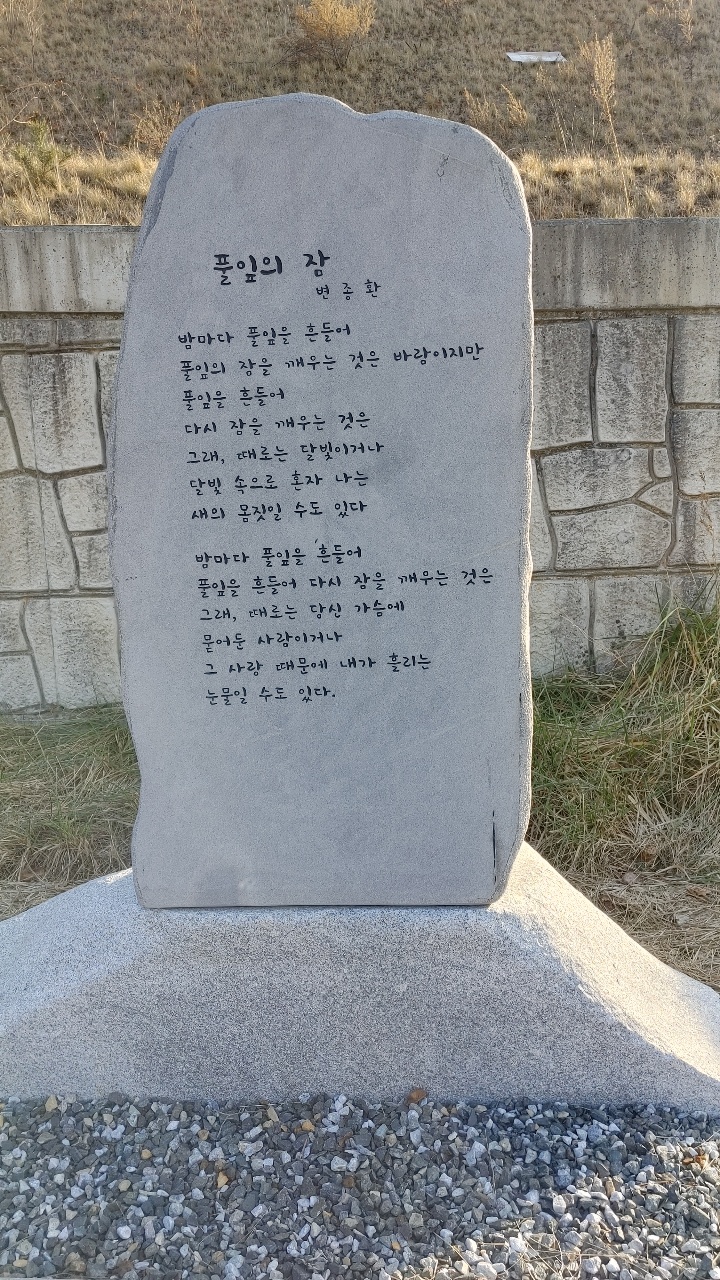 풀잎의 잠
변종환
밤마다 풀잎을 흔들어
풀잎의 잠을 깨우는 것은 바람이지만
풀잎을 흔들어
다시 잠을 깨우는 것은
그래, 때로는 달빛이거나
달빛 속으로 혼자 나는
새의 몸짓일 수도 있다
밤마다 풀잎을 흔들어
풀잎을 흔들어 다시 잠을 깨우는 것은
그래, 때로는 당신 가슴에
묻어둔 사랑이거나
그 사랑 때문에 내가 흘리는
눈물일 수도 있다.